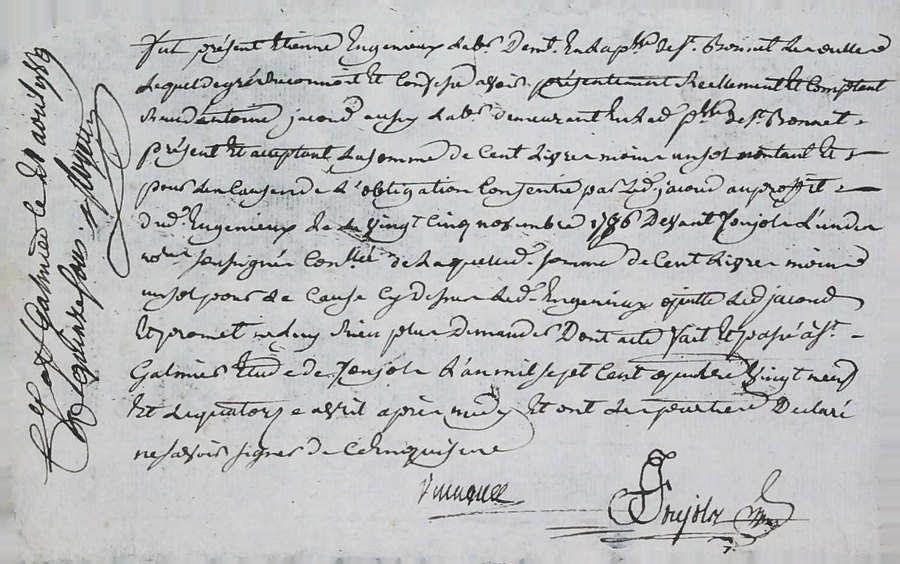 fut présent Etienne Engenieux lab.r dem.t en la p.sse de S.t Bonnet les oulles
lequel de gré a reconnu et confessé avoir présentement réellement et comptant
antoine jacoud aussy lab.r demeurant en lad. p.sse de S.t Bonnet
présent et acceptant la somme de Cent livres moins un sol montant et
pour les causes de l'obligation Consentie par led. jacoud au proffit
dud. Engenieux le vingt Cinq novembre 1786 devant Ponjola l'un des
no.res soussignés de laquelle d. somme de Cent livres moins
un sol pour de Cause cy dessus led. Engenieux quitte led. jacoud
et promet ne luy rien plus demander Dont acte fait et passé à S.t
Galmier Etude de Ponjola l'an mil sept Cent quatre Vingt neuf
et le quatorze avril après midy et ont les parties Déclaré
ne savoir signer de Ce enquises
Ponjola
à S.t Galmier le 28 avril 1789
Reçu quinze sous